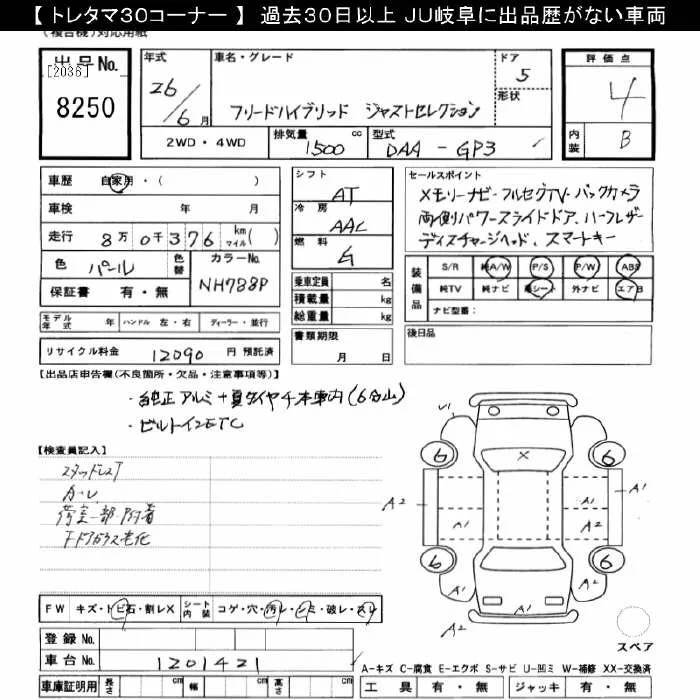 【 トレタマ30コーナー 】 過去30日以上 JU岐阜に出品歴がない車両
(複合機)対応用紙
出品No. 年式 車名・グレード ドア 評価点
[2036] 5
8250 26/6月 フリードハイブリッド ジャストセレクション 形状 4
2WD・4WD 排気量 cc 型式 内装 B
1500 DAA - GP3
車歴 自家用・( ) シフト AT セールスポイント
車検 年 月 冷房 AAC メモリーナビ・フルセグTV・バックカメラ
走行 8万0千376 km マイル( ) 燃料 G 両側パワースライドドア、ハーフレザー
色 パール 色替 カラーNo. ディスチャージヘッド、スマートキー
保証書 有・無 NH788P 乗車定員 名 装備品 S/R 純A/W P/S P/W ABS
積載量 kg 純TV 純ナビ 革シート 外ナビ エアB
総重量 kg ナビ型番:
モデル年式 年 ハンドル 左・右 ディーラー・並行 書類期限 後日品
リサイクル料金 12090 円 預託済 月 日
【出品店申告欄(不良箇所・欠品・注意事項等)】
・純正アルミ+夏タイヤ4本車内(6分山)
・ビルトインETC
【検査員記入】
スタッドレス
荷室一部
FドアガラスÀ化
U1 6 6 X A1 A2 A1 A2 A1 6 6 A1 A1 A2
FW キズ・トビ石・割レX シート内装 コゲ・穴・汚レ・シミ・破レ・スレ
登録No. スペア
車台No. 1201421 A-キズ C-腐食 E-エクボ S-サビ U-凹ミ W-補修 XX-交換済
車庫証明用 長さ cm 幅 cm 高さ cm 工具 有・無 ジャッキ 有・無